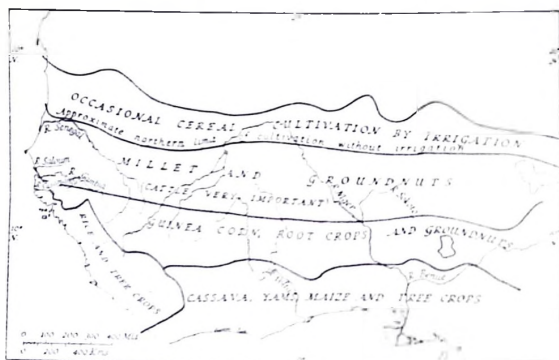 OCCASIONAL CEREAL CULTIVATION BY IRRIGATION
Approximate northern limit of cultivation without irrigation
R. Senegal
MILLET AND GROUNDNUTS
(CATTLE VERY IMPORTANT)
R. Niger
GUINEA CORN, ROOT CROPS AND GROUNDNUTS
RICE AND TREE CROPS
R. Benue
CASSAVA, YAMS, MAIZE AND TREE CROPS